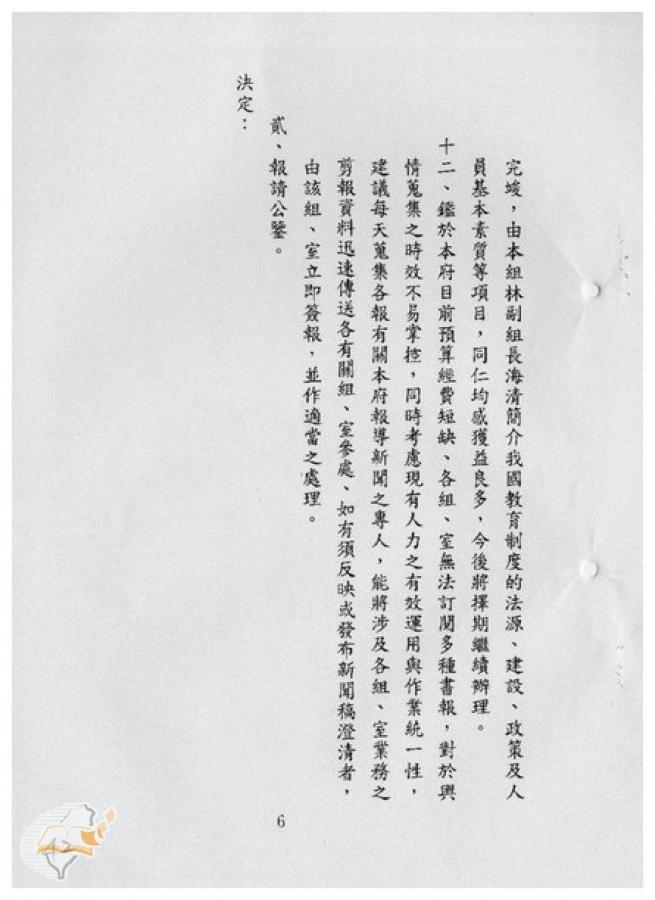 完竣，由本組林副組長海清簡介我國教育制度的法源、建設、政策及人
員基本素質等項目，同仁均感獲益良多，今後將擇期繼續辦理。
十二、鑑於本府目前預算經費短缺、各組、室無法訂閱多種書報，對於輿
情蒐集之時效不易掌控，同時考慮現有人力之有效運用與作業統一性，
建議每天蒐集各報有關本府報導新聞之專人，能將涉及各組、室業務之
剪報資料迅速傳送各有關組、室參處、如有須反映或發布新聞稿澄清者，
由該組、室立即簽報，並作適當之處理。
貳、報請公鑒。
決定：
6